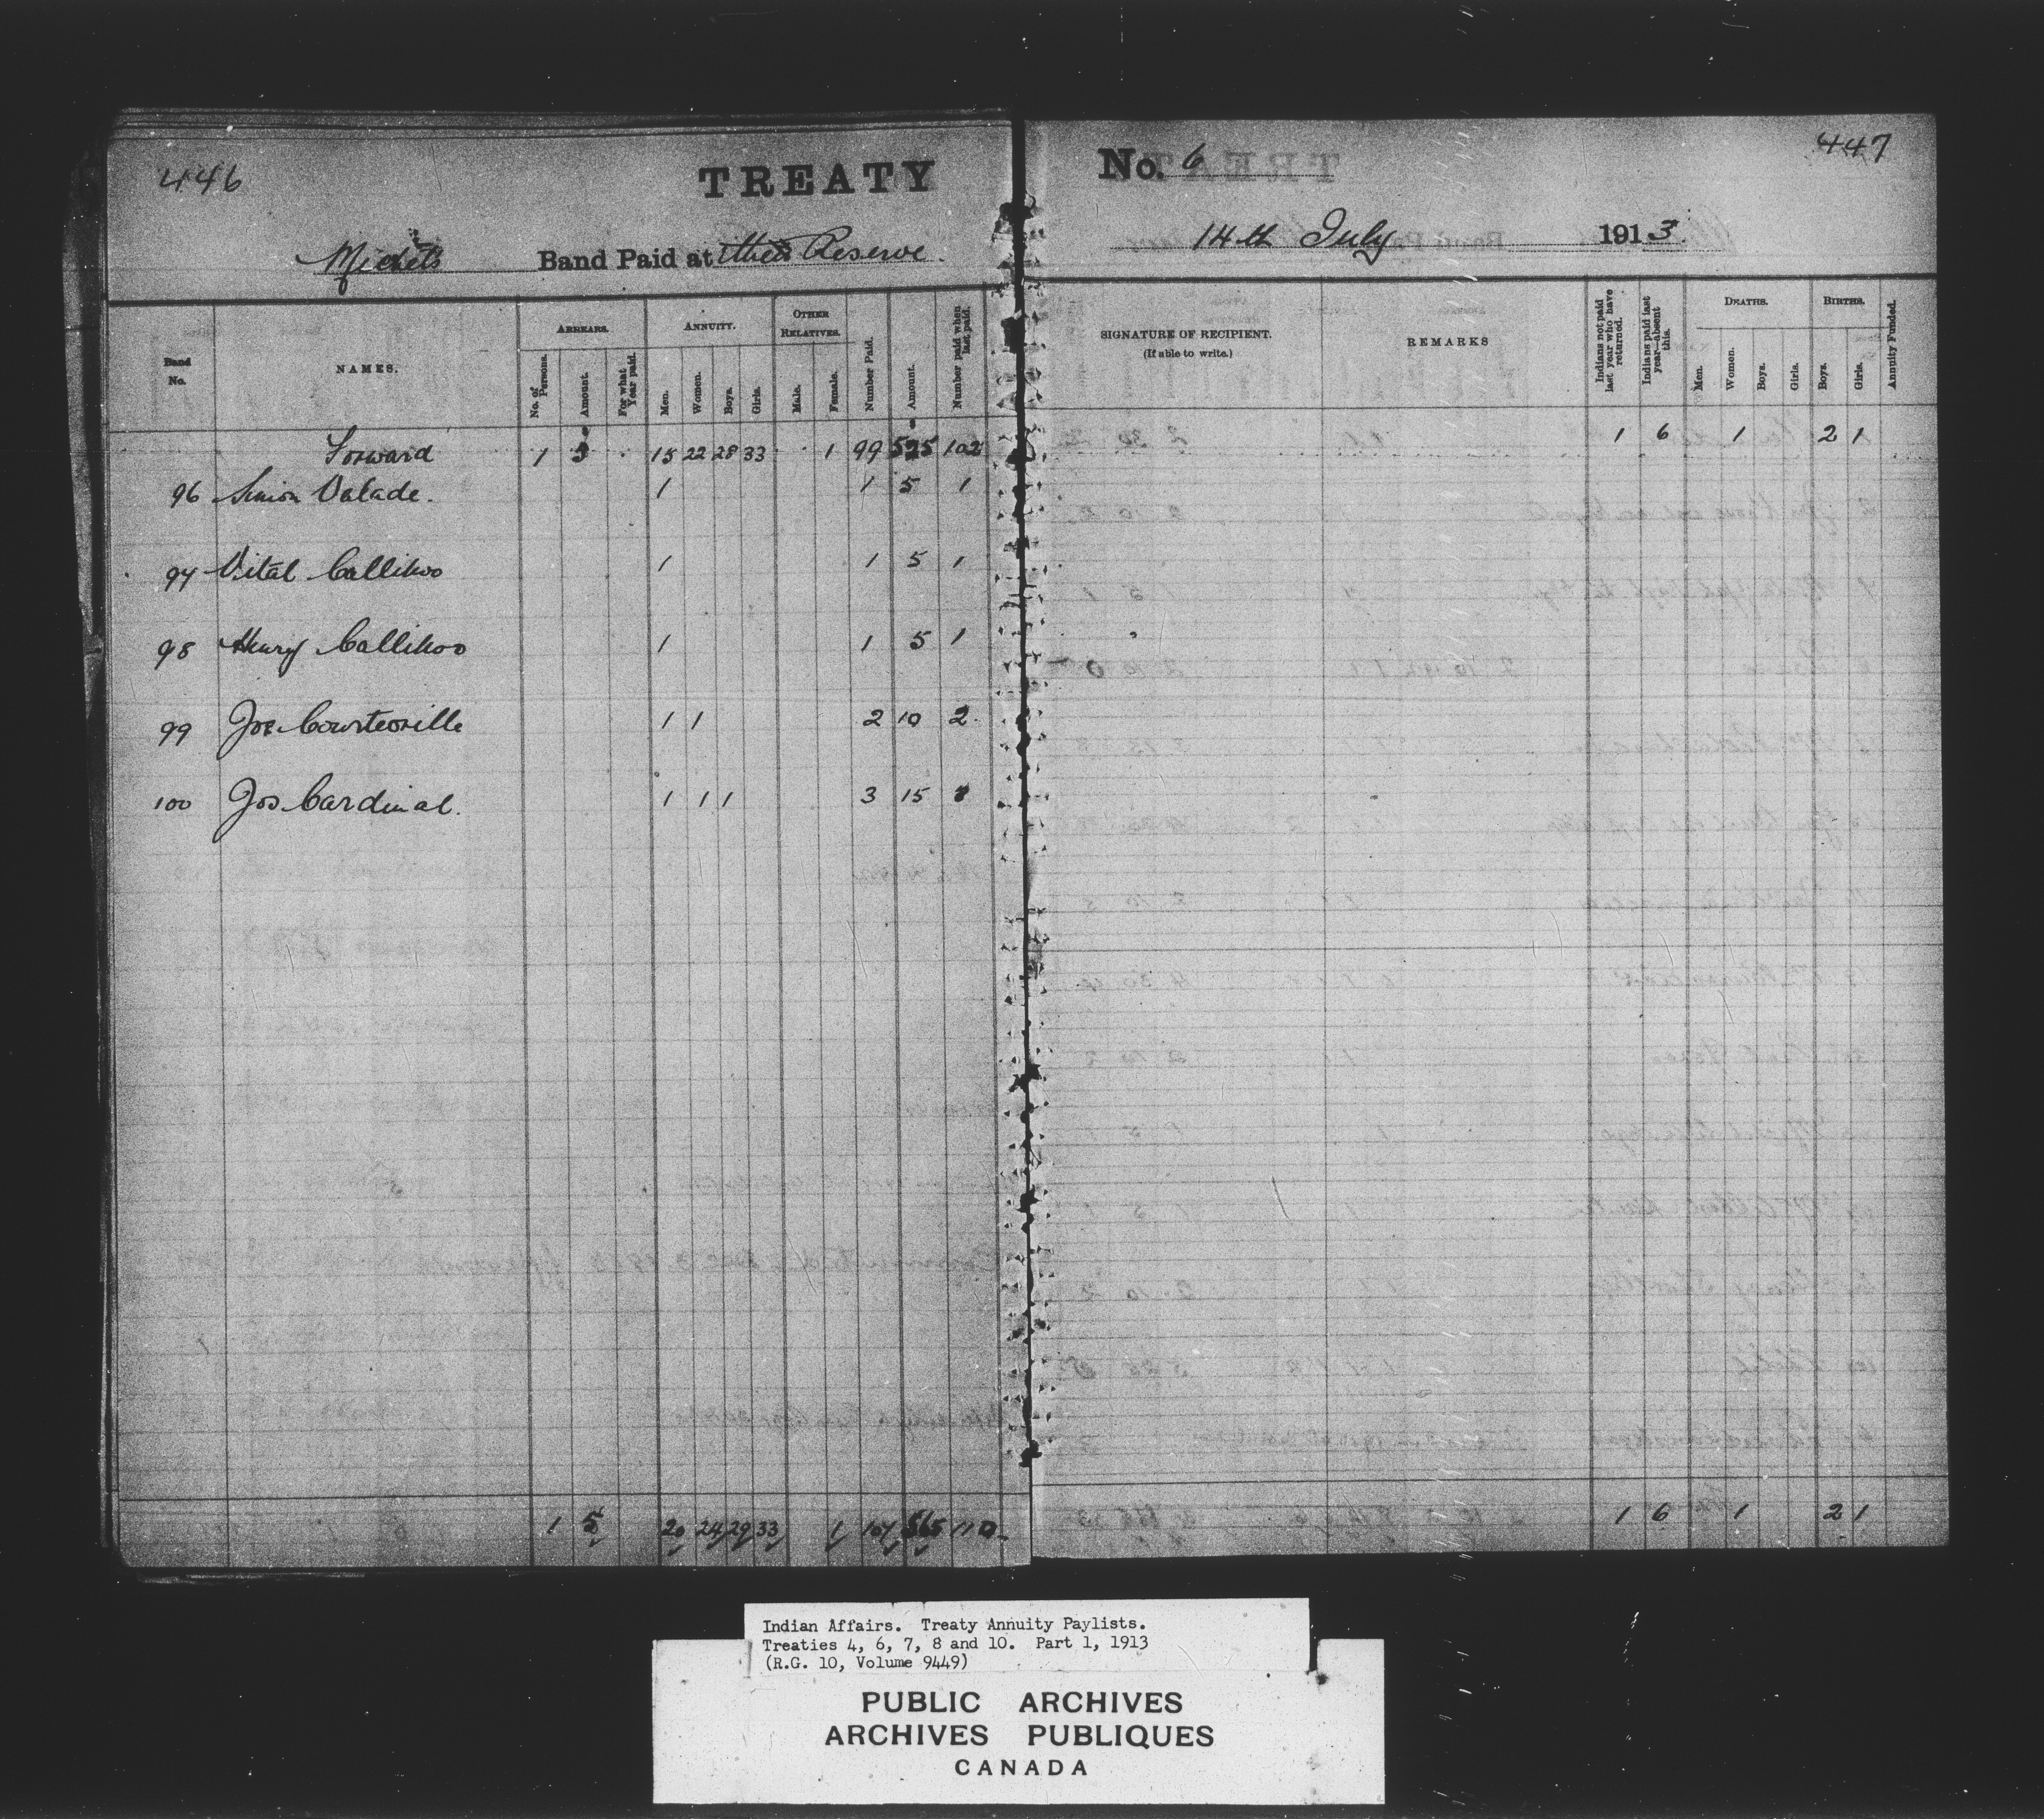 446
TREATY
No. 6
447
Michel's Band Paid at their Reserve.
14th July 1913.
Band No.
NAMES.
ARREARS.
No. of Persons.
Amount.
For what Year paid.
ANNUITY.
Men.
Women.
Boys.
Girls.
OTHER RELATIVES.
Male.
Female.
Number Paid.
Amount.
Number paid when last paid.
SIGNATURE OF RECIPIENT.
(If able to write.)
REMARKS
Indians not paid last year who have returned.
Indians paid last year—absent this.
DEATHS.
Men.
Women.
Boys.
Girls.
BIRTHS.
Boys.
Girls.
Annuity Funded.
Forward 1 5 15 22 28 33 1 99 525 102 1 6 1 2 1
96 Simon Valade. 1 1 5 1
97 Vital Callihoo 1 1 5 1
98 Henry Callihoo 1 1 5 1
99 Joe Courteorille 1 1 2 10 2
100 Jos Cardinal. 1 1 1 3 15 3
1 5 20 24 29 33 1 107 565 110 1 6 1 2 1
Indian Affairs. Treaty Annuity Paylists.
Treaties 4, 6, 7, 8 and 10. Part 1, 1913
(R.G. 10, Volume 9449)
PUBLIC ARCHIVES
ARCHIVES PUBLIQUES
CANADA